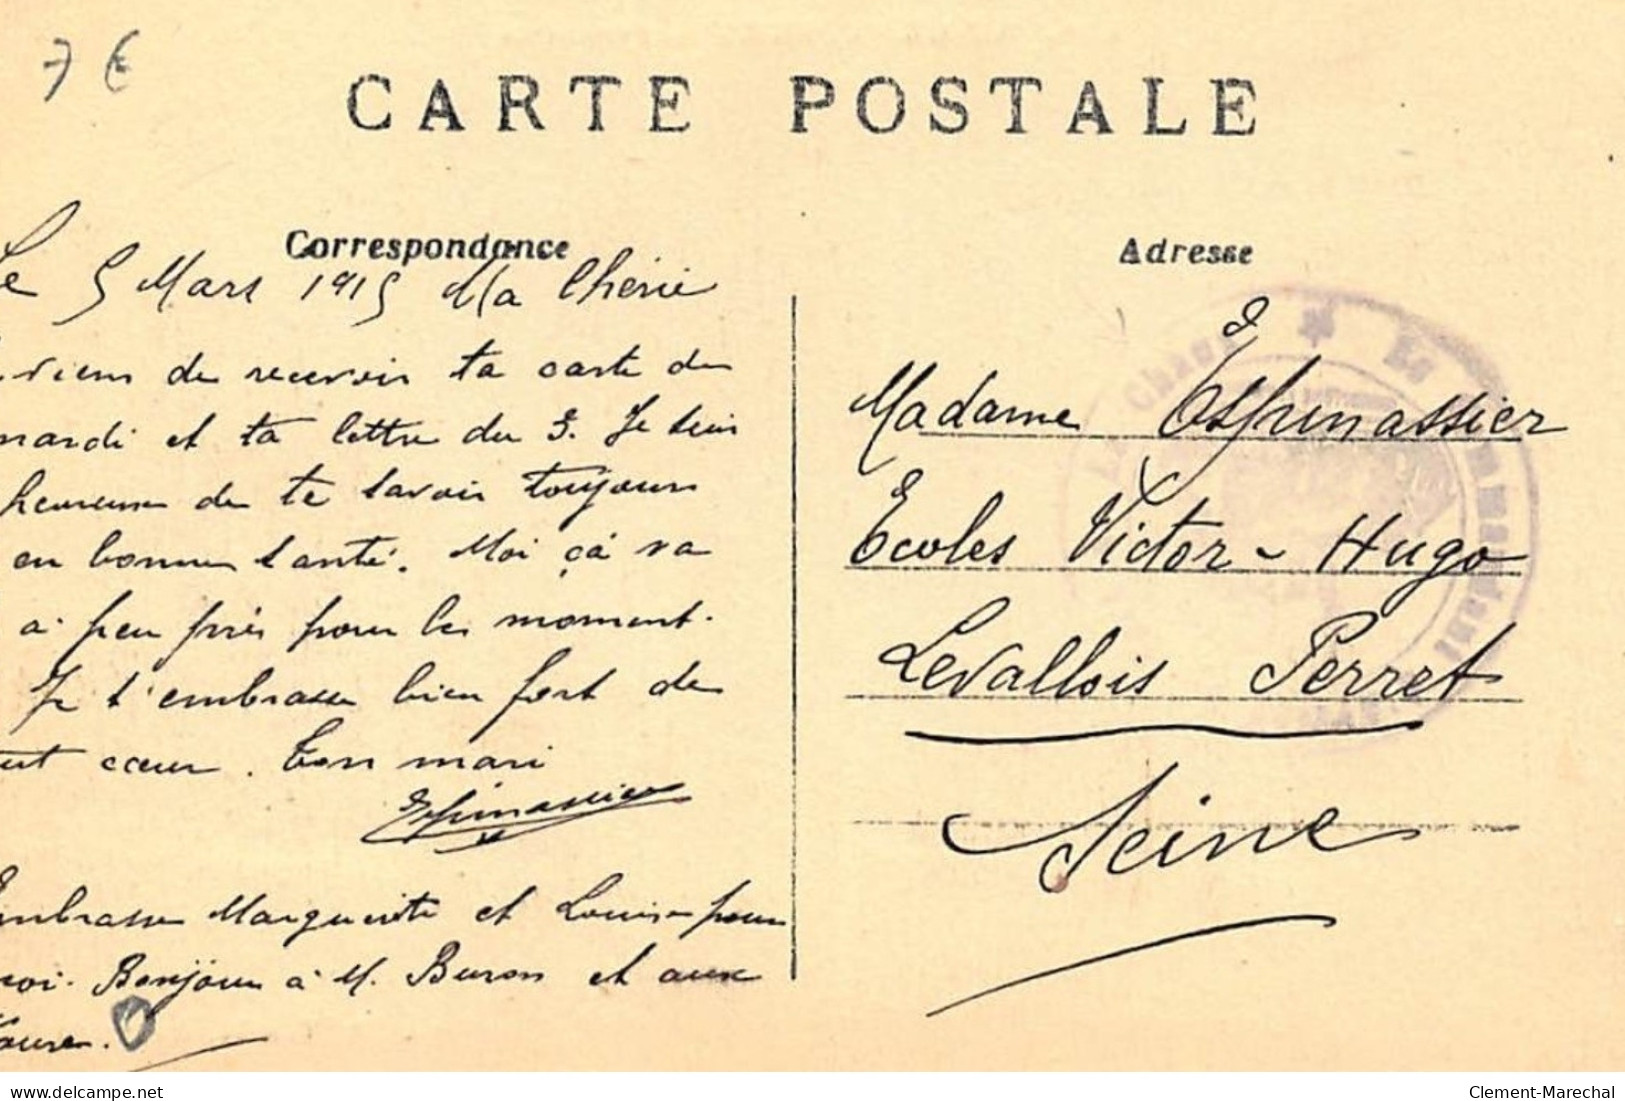 7 €
CARTE POSTALE
Correspondance
Le 5 Mars 1915 Ma Chérie
viens de recevoir ta carte de
mardi et ta lettre du 3. Je suis
heureuse de te savoir toujours
en bonne santé. Moi çà va
à peu près pour le moment.
Je t'embrasse bien fort de
tout cœur. Ton mari
Espinassier
Embrasse Marguerite et Louise pour
moi. Bonjour à M. Buron et aux
Adresse
Madame Espinassier
Ecoles Victor-Hugo
Levallois Perret
Seine
delcampe.net
Clement-Marechal